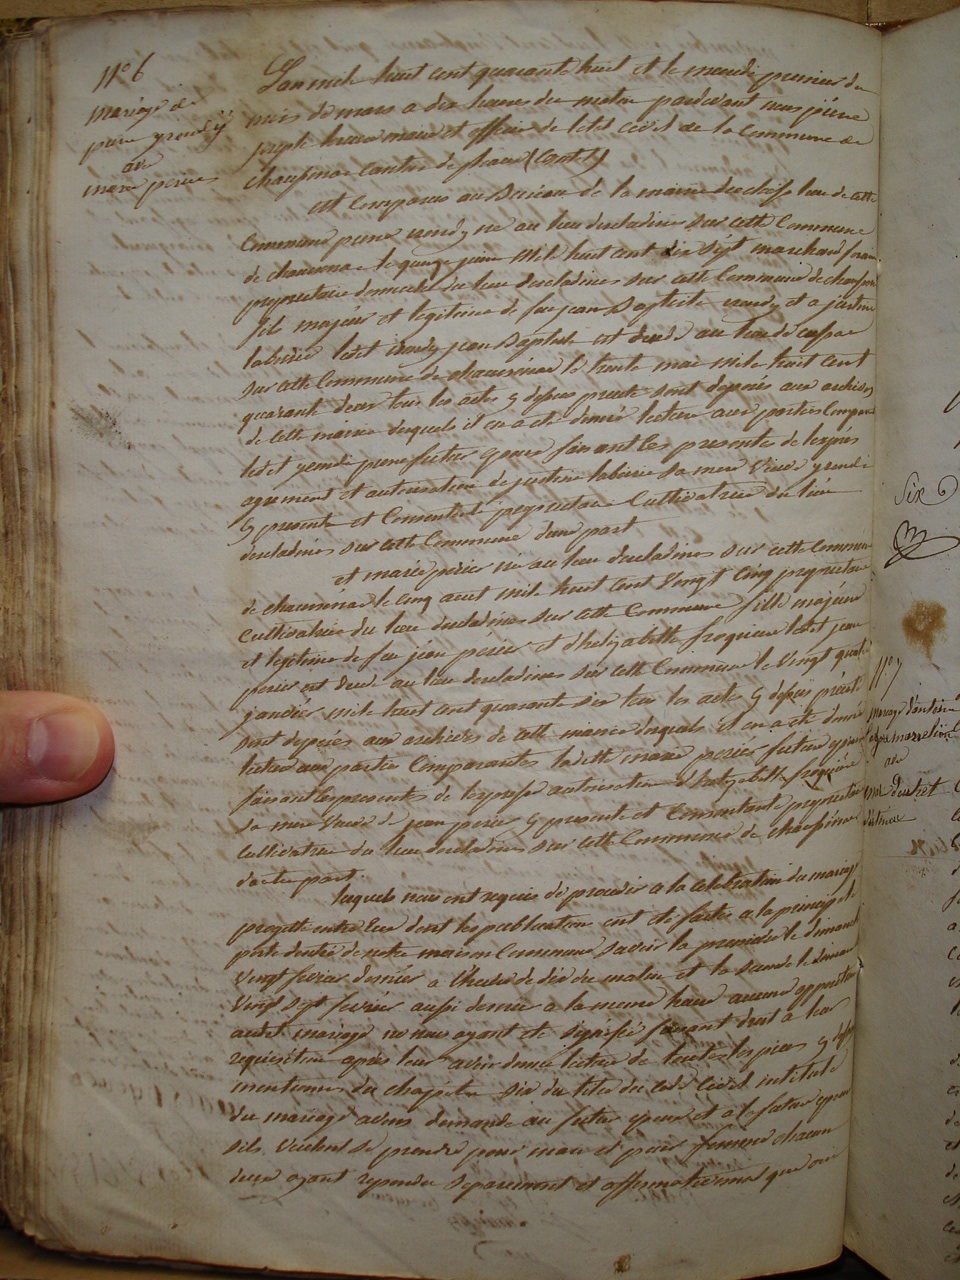 n° 6
mariage de
pierre yrondy
avec
marie perier
L'an mil huit cent quarante huit et le mercredi premier du
mois de mars a dix heures du matin pardevant nous pierre
joseph maire et officier de l'etat civil de la Commune de
chaussenac Canton de pleaux (Cantal)
est Comparus au Bureau de la mairie du chef lieu de cette
Commune pierre yrondy né au lieu descladines sur cette Commune
de chaussenac le quinze juin mil huit cent dix sept marchand
proprietaire domicilié du lieu descladines sur cette Commune de chaussenac
fils majeur et legitime de feu jean Baptiste yrondy et a justine
labrière ledit yrondy jean Baptiste est décédé au lieu de
sur cette Commune de chaussenac le trente mai mil huit cent
quarante deux tous les actes y dessus précité sont déposés aux archives
de cette mairie desquels il en a été donné lecture aux parties Comparantes
ledit yrondy pierre futur epoux faisant les presentes de l'exprès
agrement et autorisation de justine labrière sa mere Veuve yrondi
y presente et Consentante propriétaire Cultivatrice du lieu
descladines sur cette Commune d'une part
et marie perier née au lieu descladines sur cette Commune
de chaussenac le cinq aout mil huit cent vingt cinq proprietaire
Cultivatrice du lieu descladines sur cette Commune fille majeure
et legitime de feu jean perier et d'helizabeth froquiere ledit jean
perier est décédé au lieu descladines sur cette Commune le vingt quatre
janvier mil huit cent quarante six tous les actes y dessus précité
sont déposés aux archives de cette mairie desquels il en a été donné
lecture aux parties Comparantes ladite marie perier future epouse
faisant les presentes de l'expresse autorisation d'helizabeth froquiere
sa mere Veuve de jean perier y presente et Consentante proprietaire
Cultivatrice du lieu descladines sur cette Commune de chaussenac
d'autre part
lesquels nous ont requis de proceder a la celebration du mariage
projetté entre Eux dont les publications ont été faites a la principale
porte d'entrée de notre maison Commune savoir la premiere le dimanche
Vingt fevrier dernier a l'heure de dix du matin et la seconde le dimanche
Vingt sept fevrier aussi dernier a la meme heure aucune opposition
audit mariage ne nous ayant été signifié faisant droit a leur
requisition apres leur avoir donné lecture de toutes les pieces y dessus
mentionnés du chapitre six du titre du code Civil intitulé
du mariage avons demandé au futur epoux et a la future epouse
s'ils veulent se prendre pour mari et pour femme chacun
deux ayant repondu separement et affirmativement que oui
Six
n° 7
mariage d'antoine
marcelin
avec